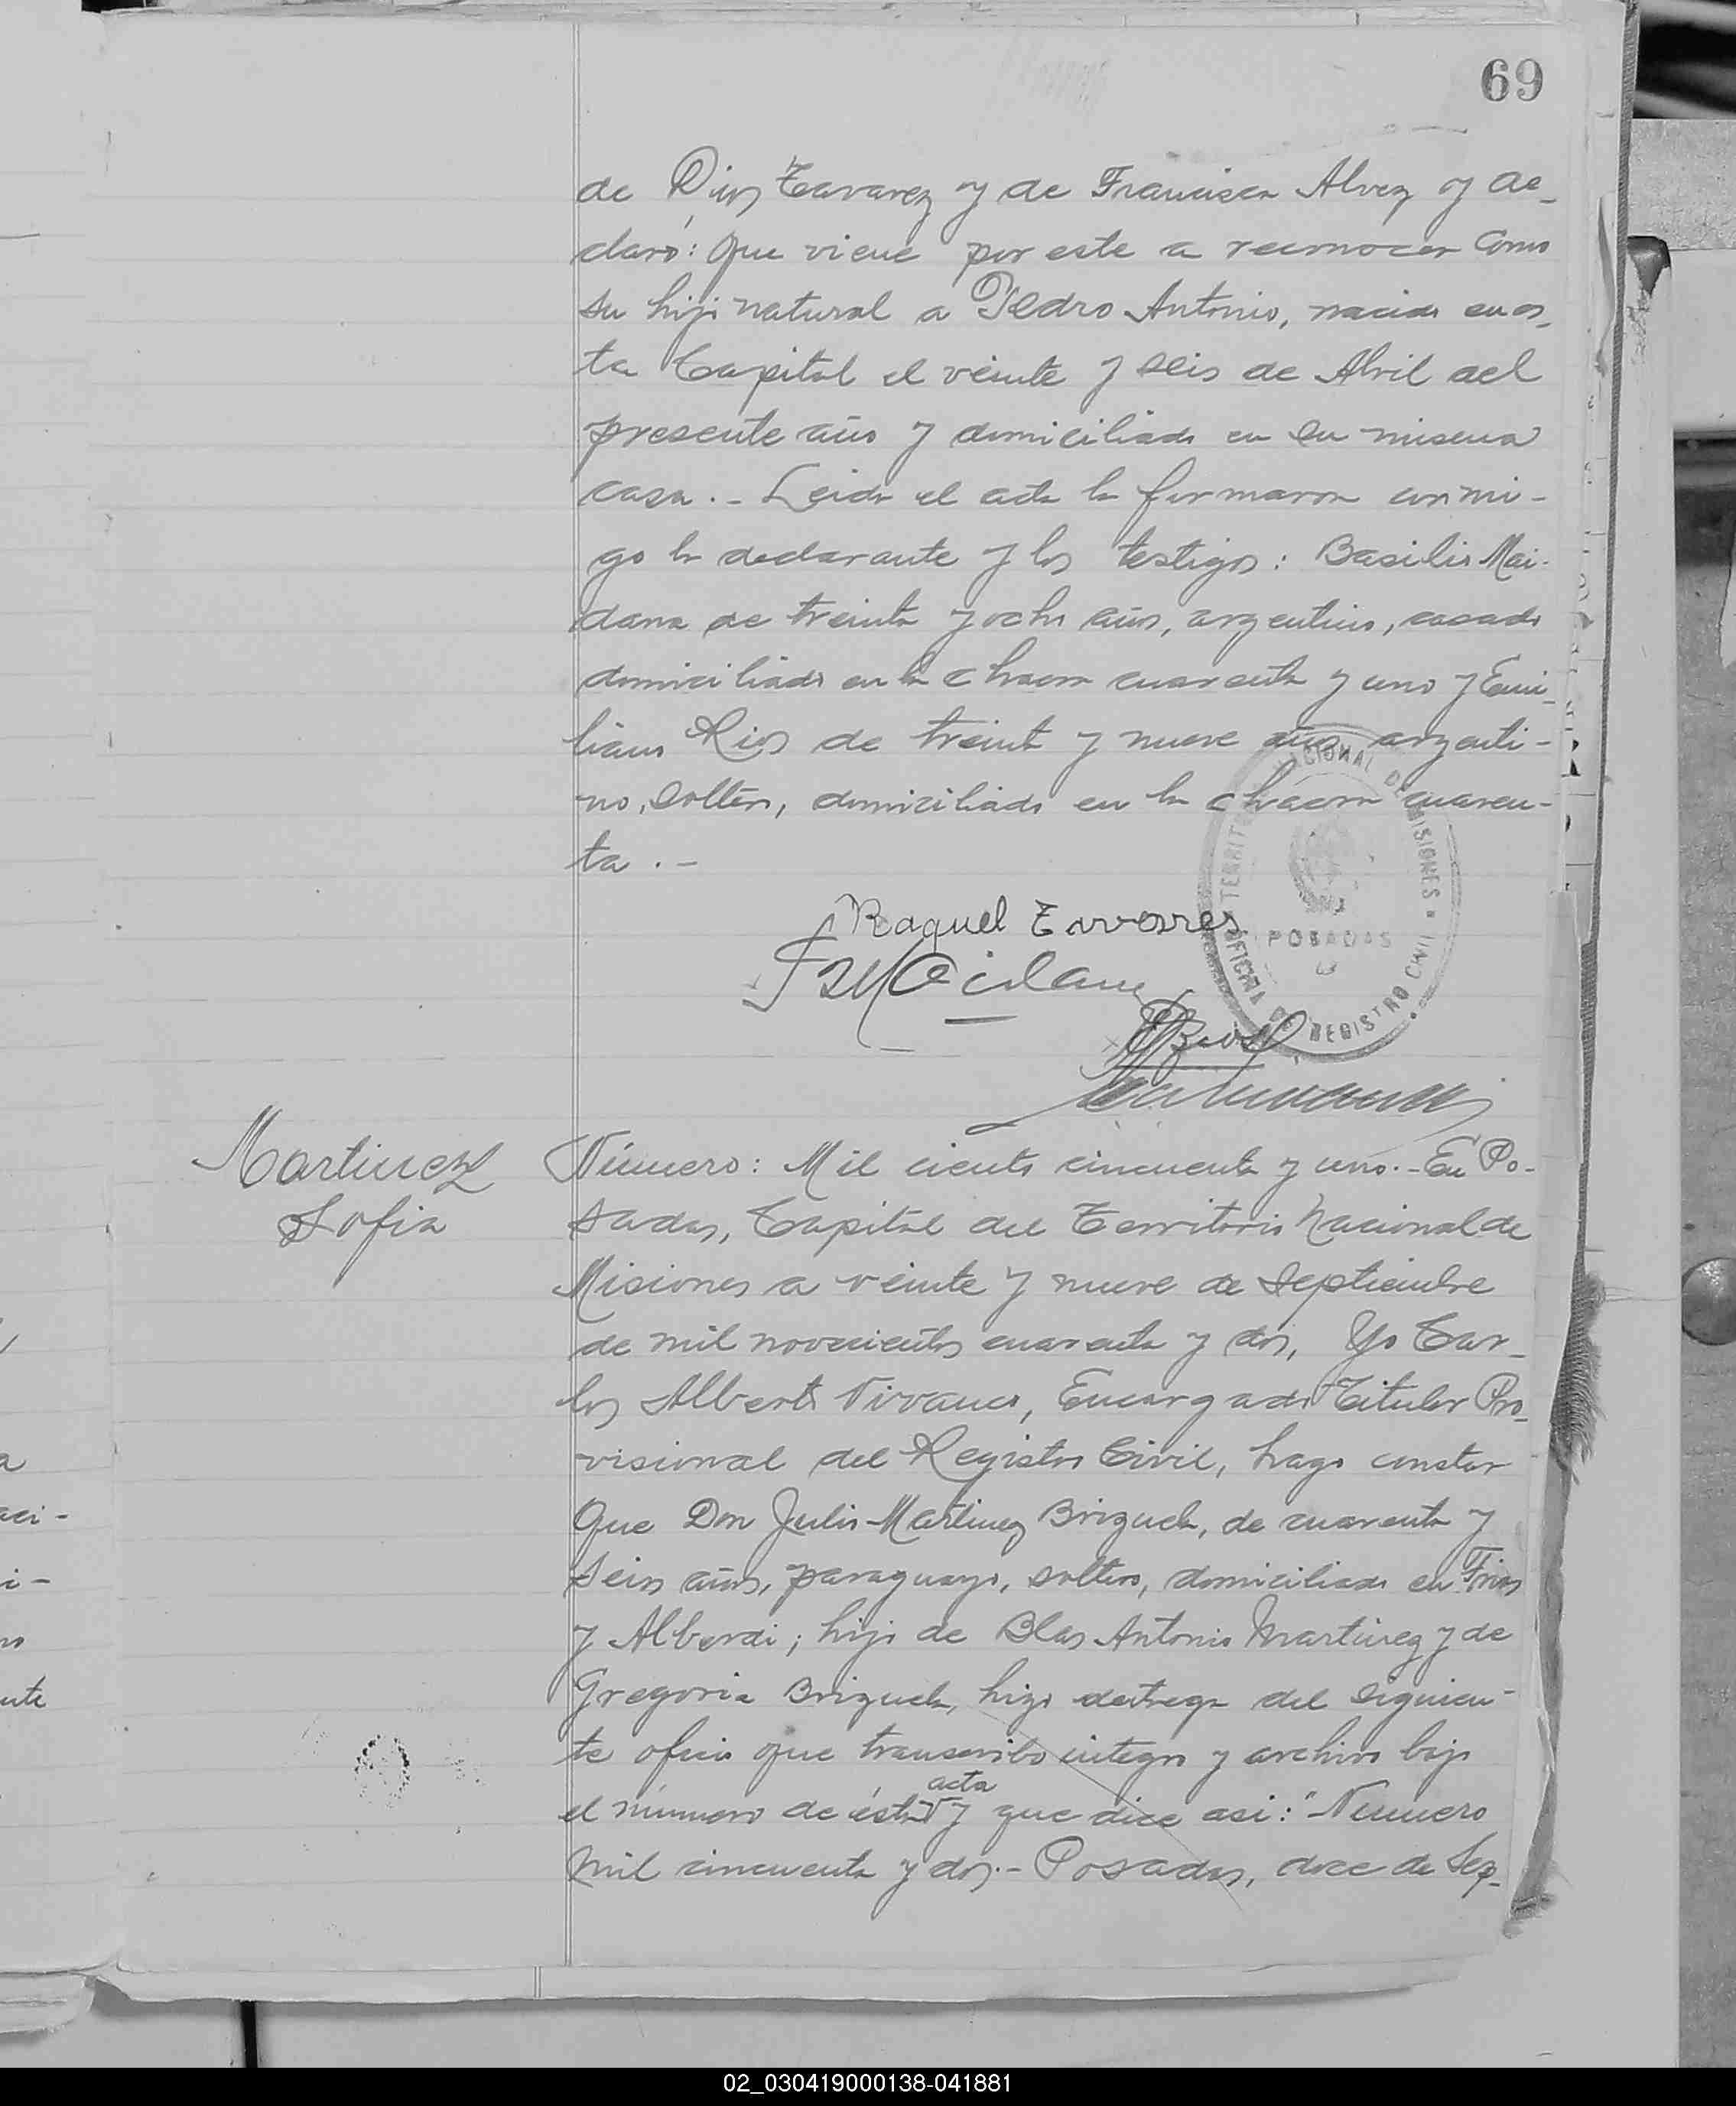 69
de Dios Tavarez y de Francisca Alvez y de-
claró: Que viene por este a reconocer como
su hijo natural a Pedro Antonio, nacido en es-
ta Capital el veinte y seis de Abril del
presente año y domiciliado en su misma
casa.- Leida el acta la firmaron conmi-
go la declarante y los testigos: Basilio Mai-
dana de treinta y ocho años, argentino, casado
domiciliado en la chacra cuarenta y uno y Emi-
liano Rios de treinta y nueve años argenti-
no, soltero, domiciliado en la chacra cuaren-
ta.-
TERRITORIO NACIONAL DE MISIONES
POSADAS
OFICINA DE REGISTRO CIVIL
Raquel Tavarres
Maidana
Martinez
Sofia
Número: Mil ciento cincuenta y uno.- En Po-
sadas, Capital del Territorio Nacional de
Misiones a veinte y nueve de Septiembre
de mil novecientos cuarenta y dos, Yo Car-
los Alberto Vivanco, Encargado Titular Pro-
visional del Registro Civil, hago constar
Que Don Julio Martinez Brizuela, de cuarenta y
seis años, paraguayo, soltero, domiciliado en Frias
y Alberdi; hijo de Blas Antonio Martinez y de
Gregoria Brizuela, hizo entrega del siguien-
te oficio que transcribo integro y archivo bajo
el número de ésta acta y que dice asi: "Número
mil cincuenta y dos.- Posadas, doce de Sep-
02_030419000138-041881